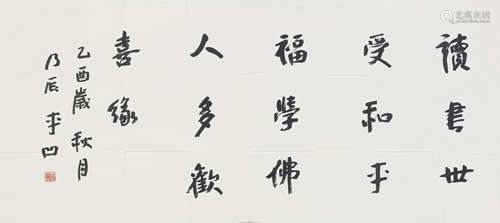 讀書世
受和平
福學佛
人多歡
喜緣
乙酉歲秋月
乃辰平凹